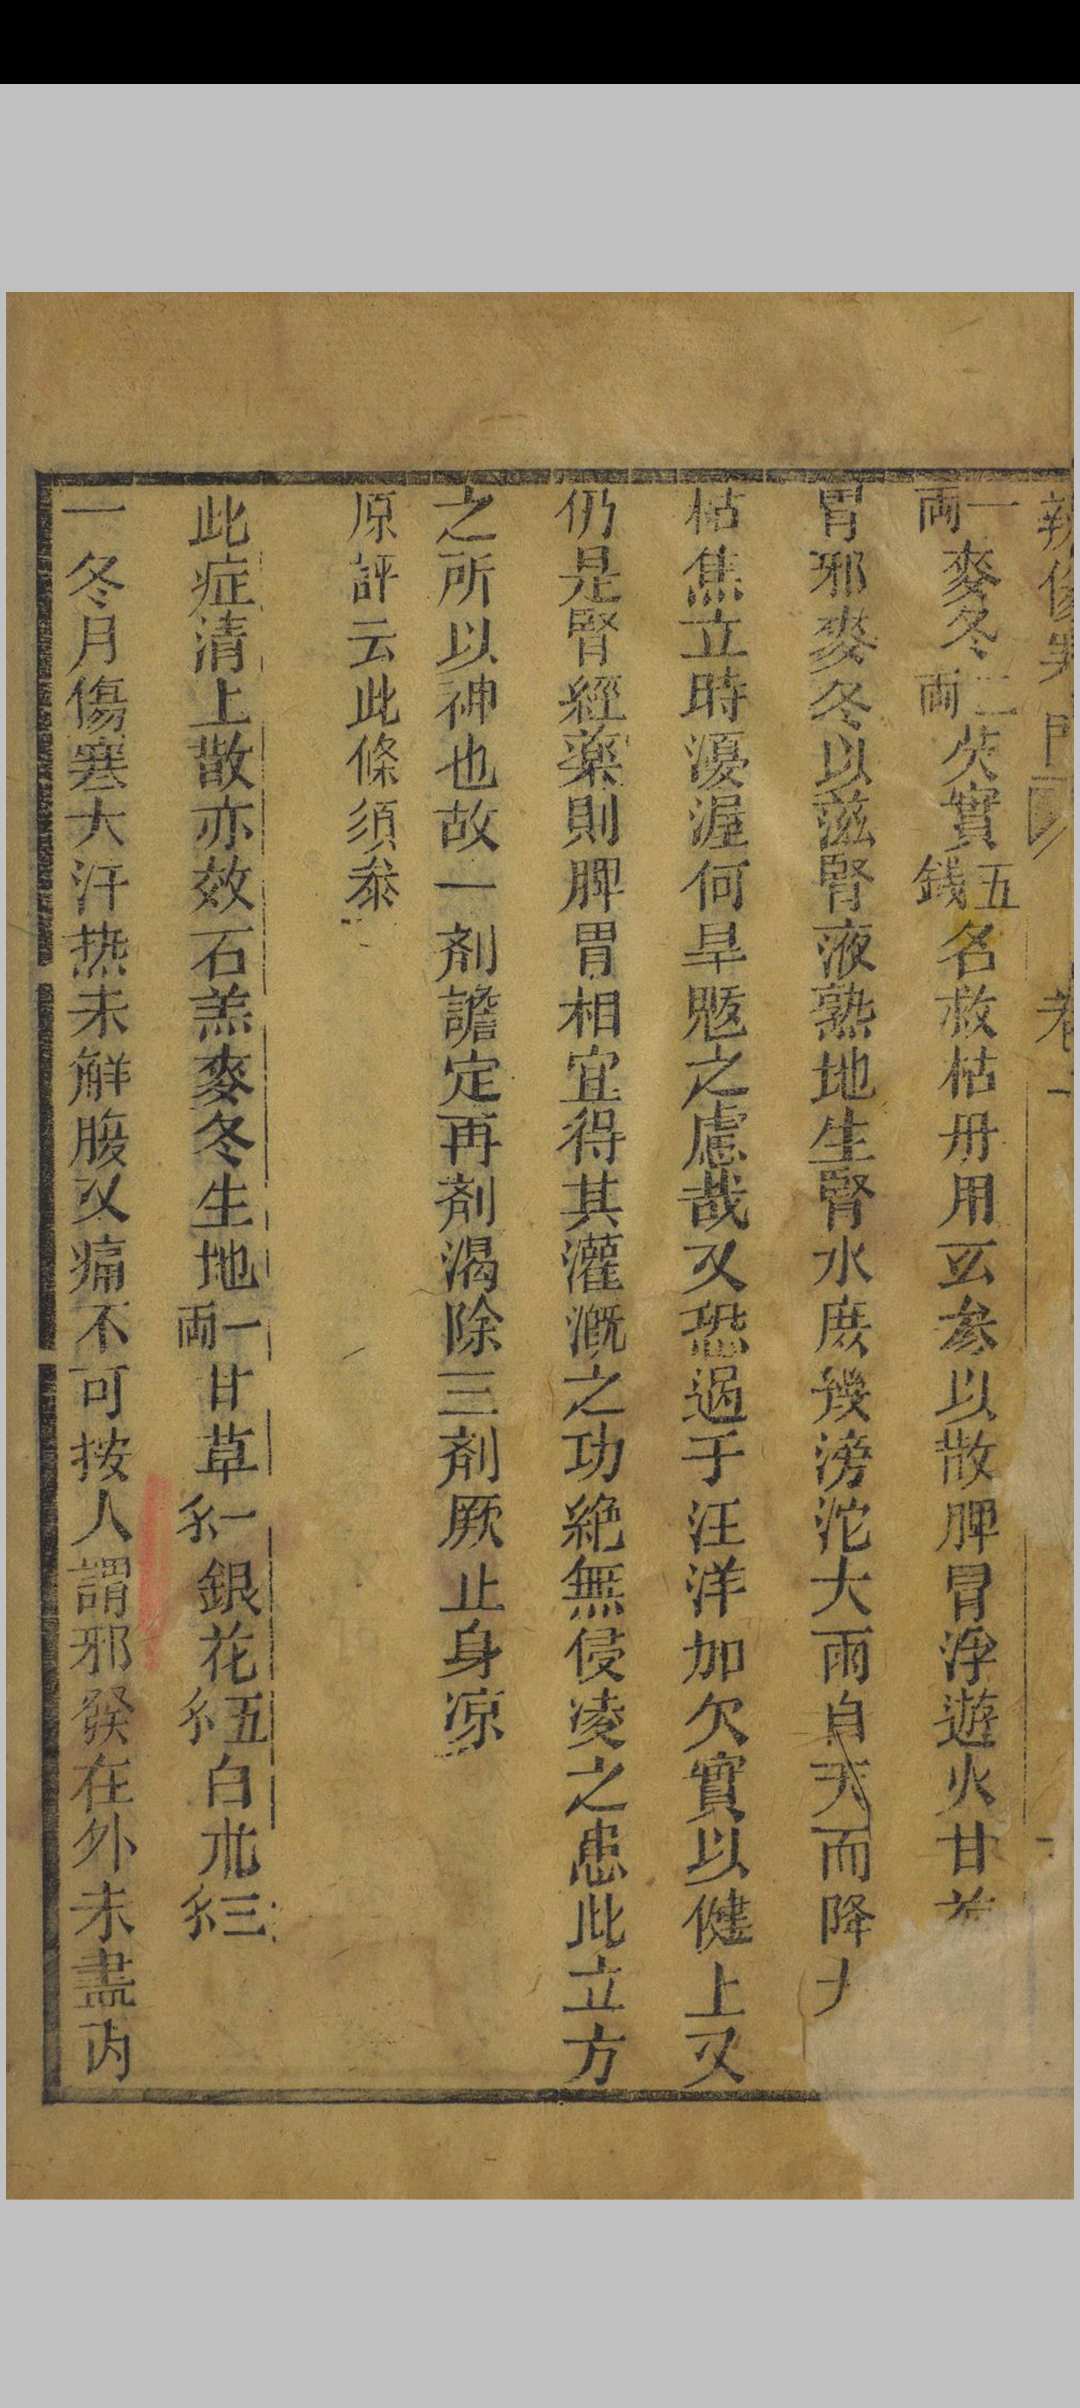 一兩麥冬二兩芡實五錢名救枯丹用玄參以散脾胃浮遊火甘菊
胃邪麥冬以滋腎液熟地生腎水庶幾滂沱大雨自天而降大
枯焦立時優渥何旱魃之慮哉又恐過于汪洋加欠實以健上又
仍是腎經藥則脾胃相宜得其灌溉之功絶無侵凌之患此立方
之所以神也故一剤譫定再剤渴除三剤厥止身凉
原評云此條須叅
此症清上散亦效石羔麥冬生地一兩甘草一分銀花五分白朮三分
一冬月傷寒大汗热未觧腹又痛不可按人謂邪發在外未盡内